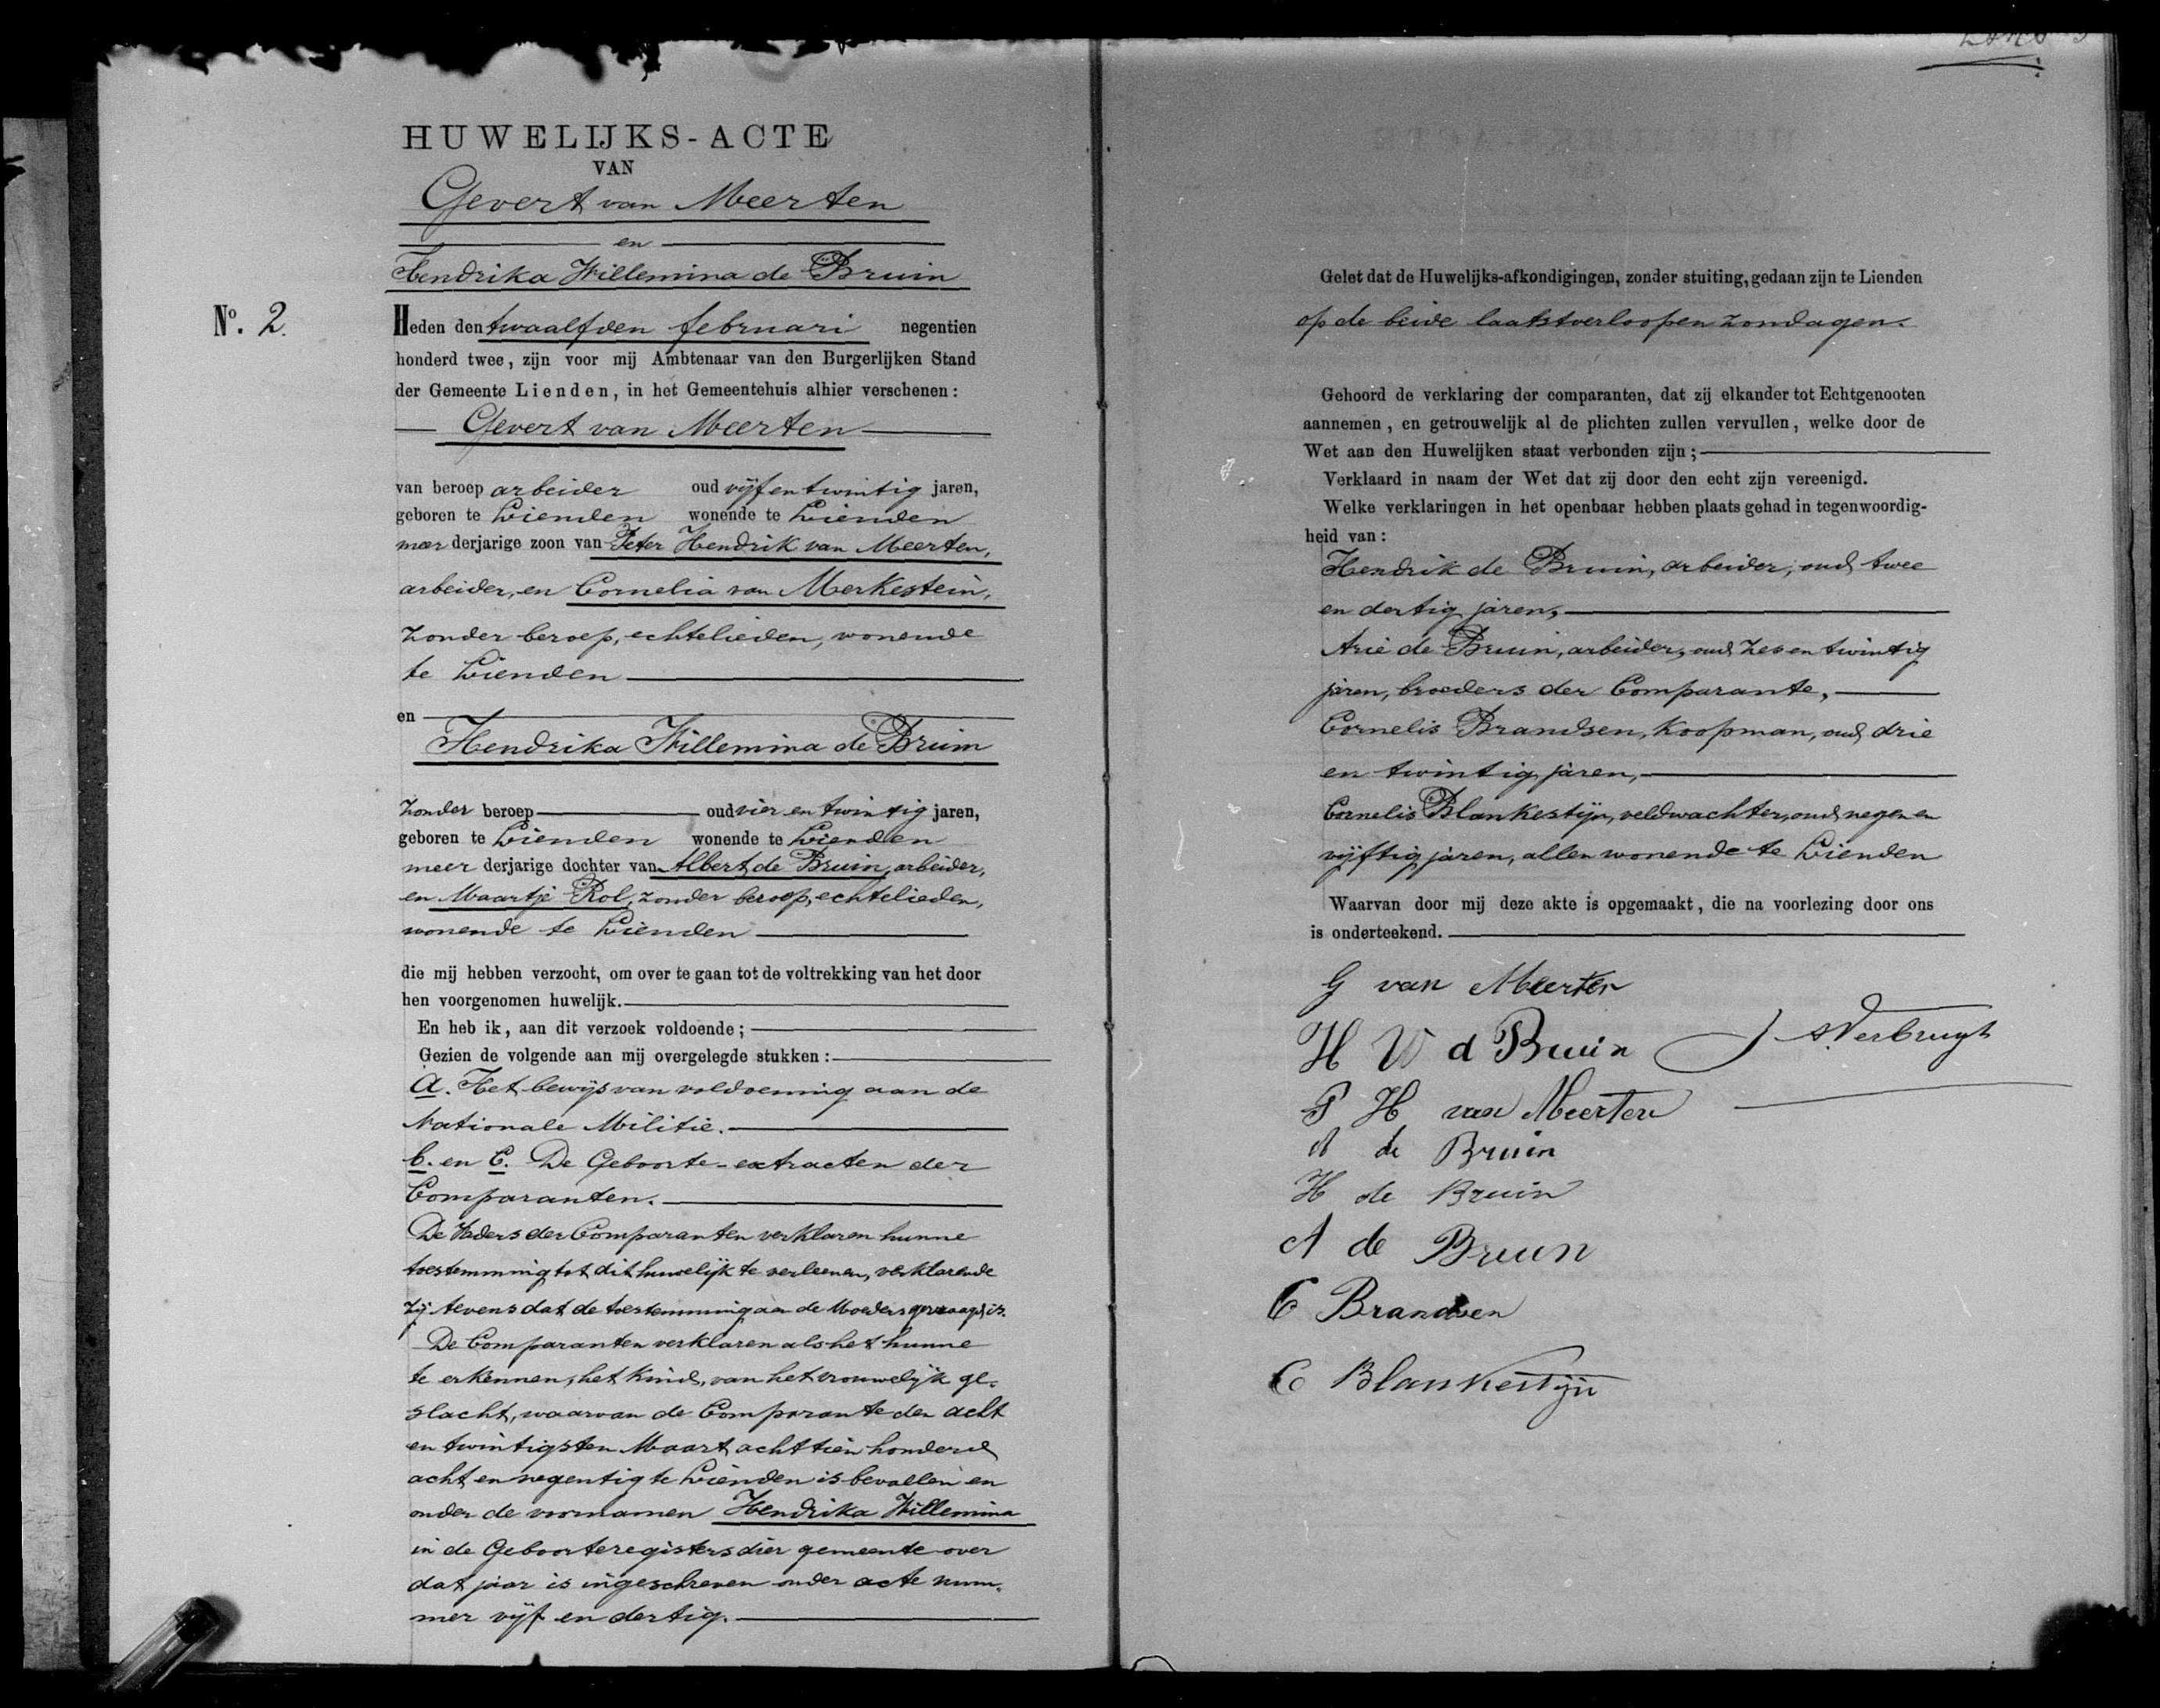 HUWELIJKS-ACTE
VAN
Gevert van Meerten
en
Hendrika Willemina de Bruin
No. 2.
Heden den twaalfden februari negentien
honderd twee, zijn voor mij Ambtenaar van den Burgerlijken Stand
der Gemeente Lienden, in het Gemeentehuis alhier verschenen:
Gevert van Meerten
van beroep arbeider oud vijf en twintig jaren,
geboren te Lienden wonende te Lienden
meerderjarige zoon van Peter Hendrik van Meerten,
arbeider, en Cornelia van Merkestein,
zonder beroep, echtelieden, wonende
te Lienden
en
Hendrika Willemina de Bruin
zonder beroep oud vier en twintig jaren,
geboren te Lienden wonende te Lienden
meerderjarige dochter van Albert de Bruin, arbeider,
en Maartje Rol, zonder beroep, echtelieden,
wonende te Lienden
die mij hebben verzocht, om over te gaan tot de voltrekking van het door
hen voorgenomen huwelijk.
En heb ik, aan dit verzoek voldoende;
Gezien de volgende aan mij overgelegde stukken:
A. Het bewijs van voldoening aan de
Nationale Militie.
b. en C. De Geboorte-extracten der
Comparanten.
De Vaders der Comparanten verklaren hunne
toestemming tot dit huwelijk te verleenen, verklarende
zij tevens dat de toestemming aan de Moeders gevraagd is.
De Comparanten verklaren als het hunne
te erkennen, het kind, van het vrouwelijk ge-
slacht, waarvan de Comparante den acht
en twintigsten Maart achttien honderd
acht en negentig te Lienden is bevallen en
onder de voornamen Hendrika Willemina
in de Geboorteregisters dier gemeente over
dat jaar is ingeschreven onder acte num-
mer vijf en dertig.
Gelet dat de Huwelijks-afkondigingen, zonder stuiting, gedaan zijn te Lienden
op de beide laatstverloopen zondagen.
Gehoord de verklaring der comparanten, dat zij elkander tot Echtgenooten
aannemen, en getrouwelijk al de plichten zullen vervullen, welke door de
Wet aan den Huwelijken staat verbonden zijn;
Verklaard in naam der Wet dat zij door den echt zijn vereenigd.
Welke verklaringen in het openbaar hebben plaats gehad in tegenwoordig-
heid van:
Hendrik de Bruin, arbeider, oud twee
en dertig jaren,
Arie de Bruin, arbeider, oud zes en twintig
jaren, broeders der Comparante,
Cornelis Brandsen, koopman, oud drie
en twintig jaren,
Cornelis Blankestijn, veldwachter, oud negen en
vijftig jaren, allen wonende te Lienden
Waarvan door mij deze akte is opgemaakt, die na voorlezing door ons
is onderteekend.
G van Meerten
H W d Bruin
Verbrugh
P H van Meerten
A de Bruin
H de Bruin
A de Bruin
C Brandsen
C Blankestijn